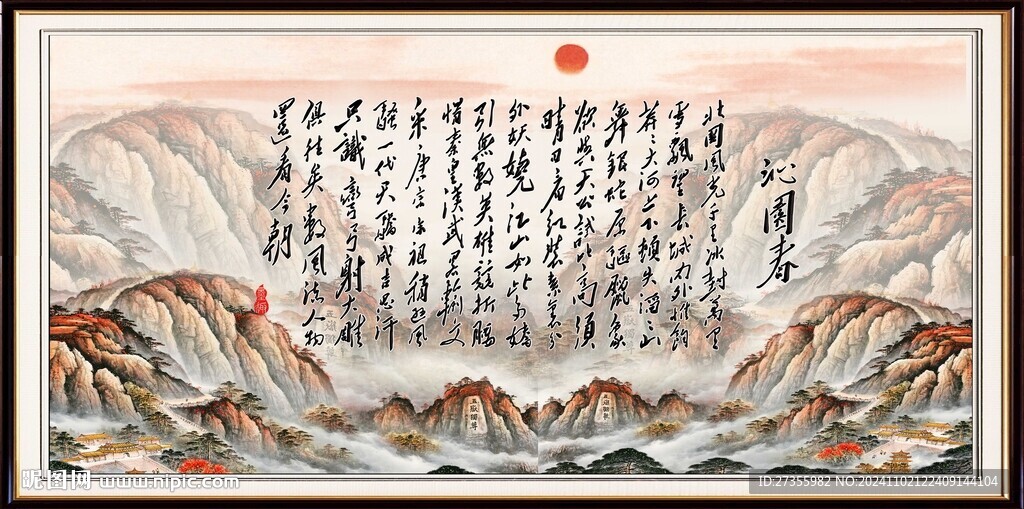 沁園春
北國風光千里冰封萬里
雪飄望長城内外惟餘
莽〻大河上下頓失滔〻山
舞銀蛇原驅臘象
欲與天公試比高須
晴日看紅裝素裹分
外妖嬈江山如此多嬌
引無數英雄競折腰
惜秦皇漢武略輸文
采唐宗宋祖稍遜風
騷一代天驕成吉思汗
只識彎弓射大雕
俱往矣數風流人物
還看今朝
五嶽獨尊
五嶽獨尊
昵图网 www.nipic.com
ID:27355982 NO:20241102122409144104